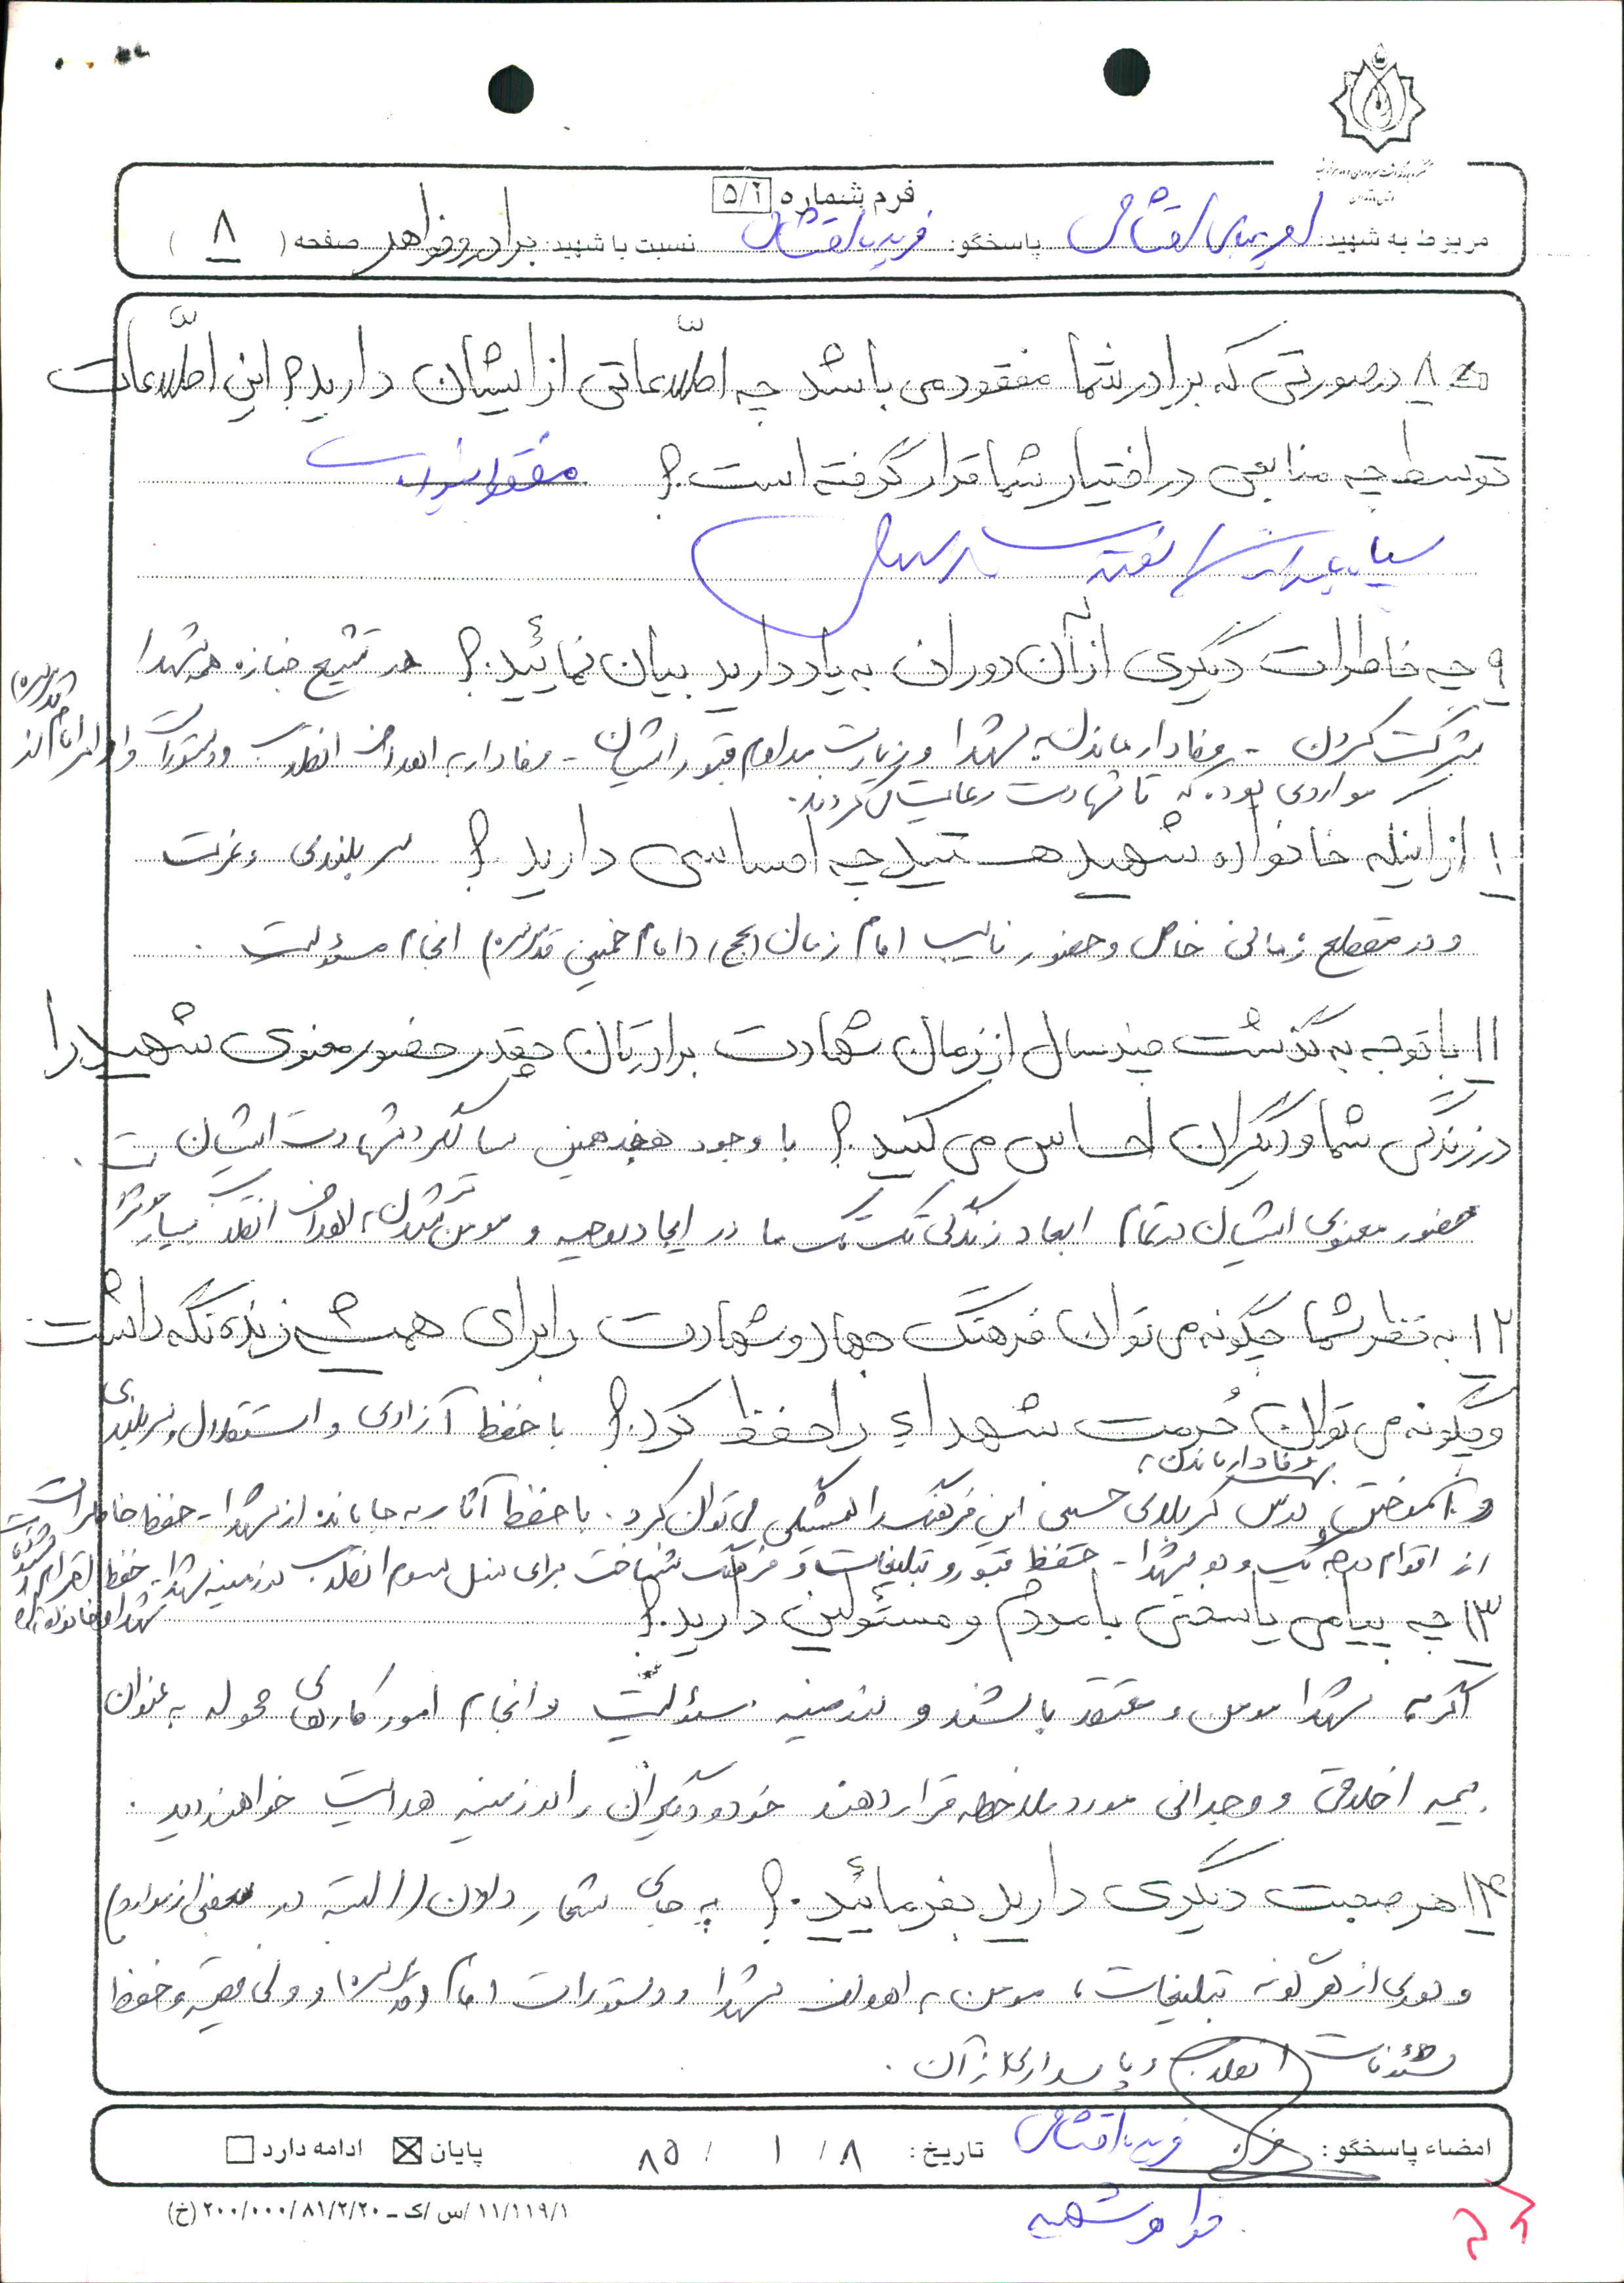 فرم شماره ۵/۲
مربوط به شهید: پاسخگو: نسبت با شهید: برادر و خواهر صفحه ( ۸ )
۸ در صورتی که برادر شما مفقود می باشد چه اطّلاعاتی از ایشان دارید؟ این اطّلاعات
توسط چه منابعی در اختیار شما قرار گرفته است؟
۹ چه خاطرات دیگری از آن دوران به یاد دارید بیان نمائید؟ در تشیع جنازه شهدا
شرکت کردن - وفادار ماندن به شهدا و زیارت مداوم قبور ایشان - وفادار به اهداف انقلاب و دستورات و اوامر امام
مواردی بوده که تا شهادت رعایت می کردند.
۱۰ از اینکه خانواده شهید هستید چه احساسی دارید؟ سربلندی و عزت
و در مقطع زمانی خاص و حضور نائب امام زمان (عج) (امام خمینی قدس سره) انجام مسئولیت.
۱۱ با توجه به گذشت چند سال از زمان شهادت برادرتان چقدر حضور معنوی شهید را
در زندگی شما و دیگران احساس می کنید؟ با وجود هجدهمین سالگرد شهادت ایشان
حضور معنوی ایشان در تمام ابعاد زندگی تک تک ما در ایجاد روحیه و مومن شدن به اهداف انقلاب بسیار موثر
۱۲ به نظر شما چگونه می توان فرهنگ جهاد و شهادت را برای همیشه زنده نگه داشت
و چگونه می توان حُرمت شهداء را حفظ کرد؟ با حفظ آزادی و استقلال و سربلندی
وفادار ماندن به
و آموختن درس کربلای حسینی این فرهنگ را همیشگی می توان کرد. با حفظ آثار به جا مانده از شهدا - حفظ خاطرات
از اقوام درجه یک و دو شهدا - حفظ قبور و تبلیغات و فرهنگ شناخت برای نسل سوم انقلاب در زمینه شهدا - حفظ احترام
شهدا و خانواده
۱۳ چه پیامی یا سخنی با مردم و مسئولین دارید؟
اگر به شهدا مومن و معتقد باشند و در زمینه مسئولیت و انجام امور کارهای محوله به عنوان
اخلاقی و وجدانی مورد ملاحظه قرار دهند خود و دیگران را در زمینه هدایت خواهند دید.
۱۴ هر صحبت دیگری دارید بفرمائید؟ به جای شعار دادن (البته در بعضی از موارد)
و دوری از هر گونه تبلیغات، مومن به اهداف شهدا و دستورات امام (قدس سره) و ولی فقیه و حفظ
شئونات انقلاب و پاسداری از آن.
امضاء پاسخگو: تاریخ: ۸ / ۱ / ۸۵ پایان ادامه دارد
خواهر شهید
۱۱/۱۱۹/۱ /س /ک - ۲۰۰/۰۰۰/۸۱/۲/۲۰ (خ)